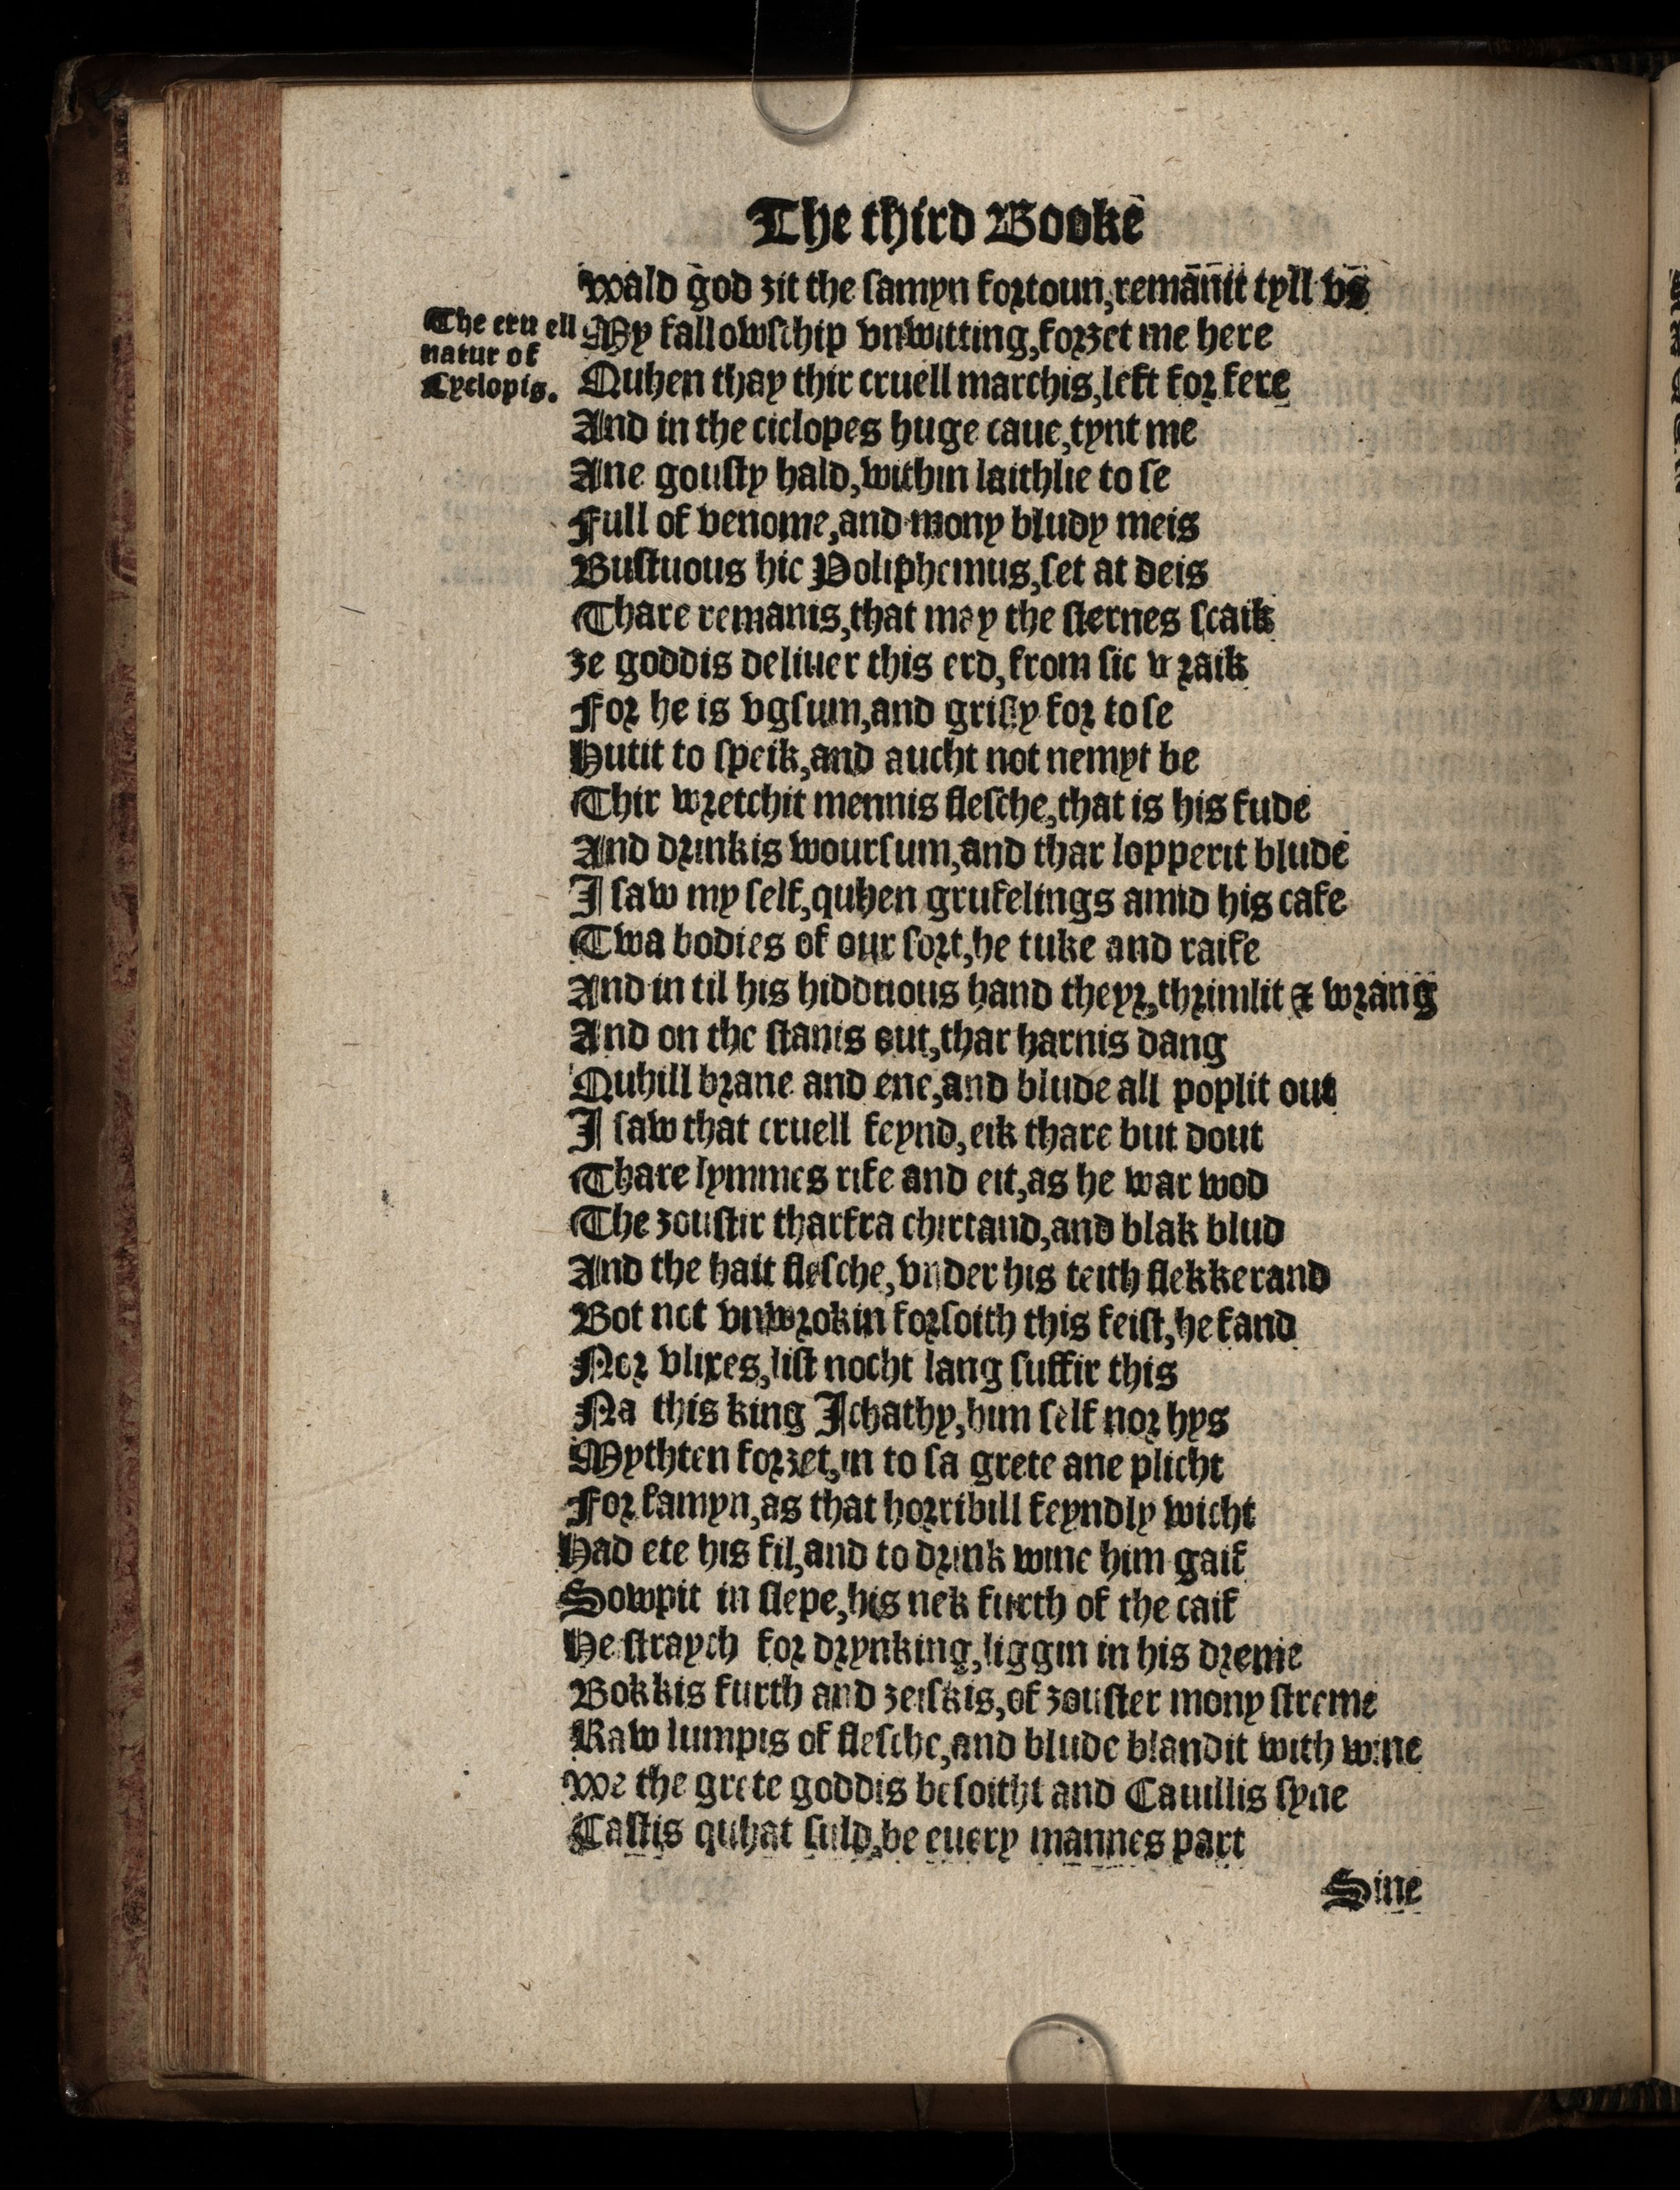 The third Booke
Wald god ȝit the samyn fortoun, remānit tyll vs
The cru ell
natur of
Cyclopis.
My fallowschip vnwitting, forȝet me here
Quhen thay thir cruell marchis, left for fere
And in the ciclopes huge caue, tynt me
Ane gousty hald, within laithlie to se
Full of venome, and mony bludy meis
Bustuous hie Poliphemus, set at deis
Thare remanis, that may the sternes scaik
ȝe goddis deliuer this erd, from sic wraik
For he is vgsum, and grisly for to se
Hutit to speik, and aucht not nemyt be
Thir wretchit mennis flesche, that is his fude
And drinkis woursum, and thar lopperit blude
I saw my self, quhen grufelings amid his cafe
Twa bodies of our sort, he tuke and raife
And in til his hidduous hand theyr, thrimlit & wrang
And on the stanis out, thar harnis dang
Quhill brane and ene, and blude all poplit out
I saw that cruell feynd, eik thare but dout
Thare lymmes rife and eit, as he war wod
The ȝoustir tharfra chirtand, and blak blud
And the hait flesche, vnder his teith flekkerand
Bot not vnwrokin forsoith this feist, he fand
Nor vlixes, list nocht lang suffir this
Na this king Ichathy, him self nor hys
Mythten forȝet, in to sa grete ane plicht
For samyn, as that horribill feyndly wicht
Had ete his fil, and to drink wine him gaif
Sowpit in slepe, his nek furth of the caif
He straych for drynking, liggin in his dreme
Bokkis furth and ȝeiskis, of ȝouster mony streme
Raw lumpis of flesche, and blude blandit with wine
We the grete goddis besoitht and Cauillis syne
Castis quhat suld, be euery mannes part
Sine